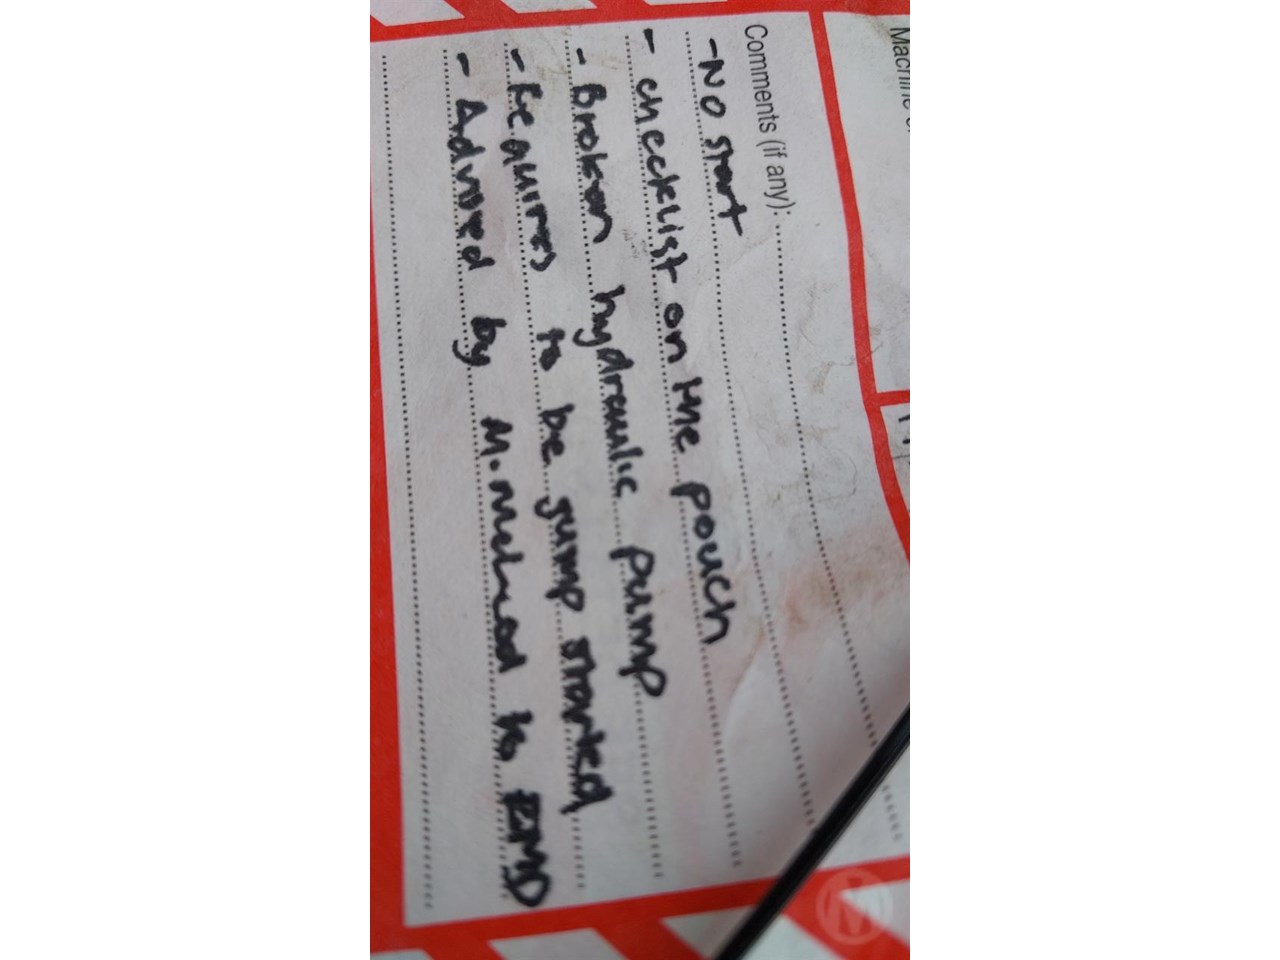 Comments (if any):
- No start
- checklist on the pouch
- Broken hydraulic pump
- Requires to be jump started
- Advised by M. to